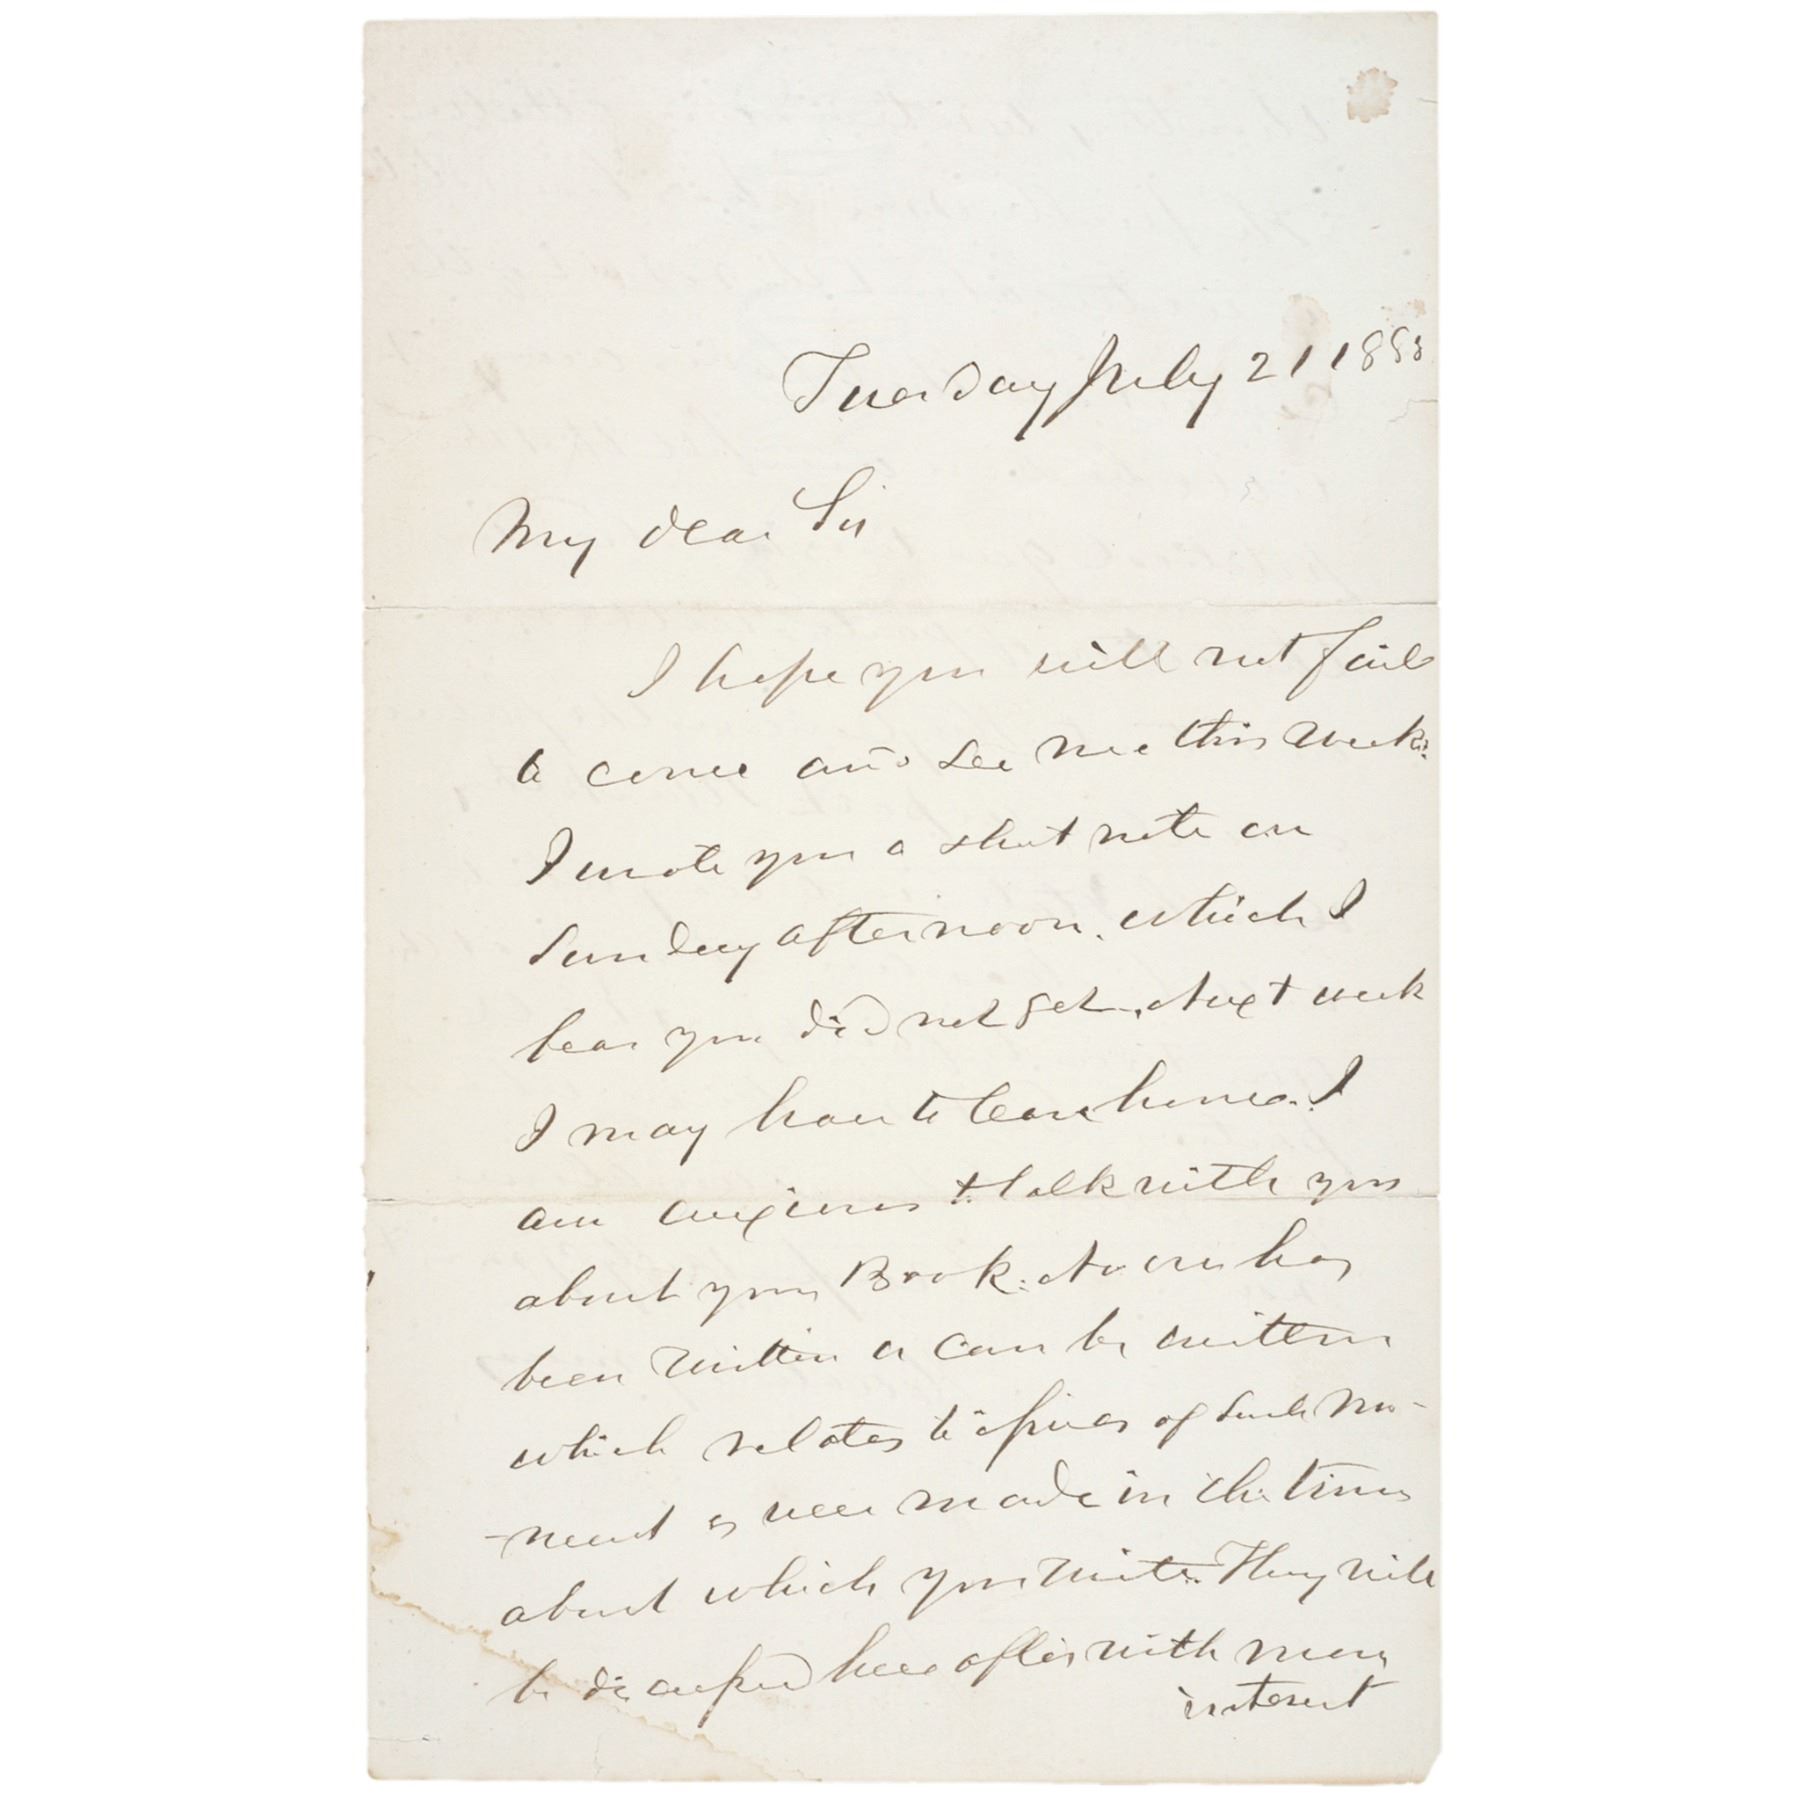 Tuesday July 21 1885
My dear Sir
I hope you will not fail
to come and see me this week.
I wrote you a short note on
Sunday afternoon, which I
hear you did not get. Next week
I may have to leave home. I
am anxious to talk with you
about your Book. No one has
been written or can be written
which relates to issues of such mo-
-ment as were made in the times
about which you write. They will
be discussed hereafter with more
interest